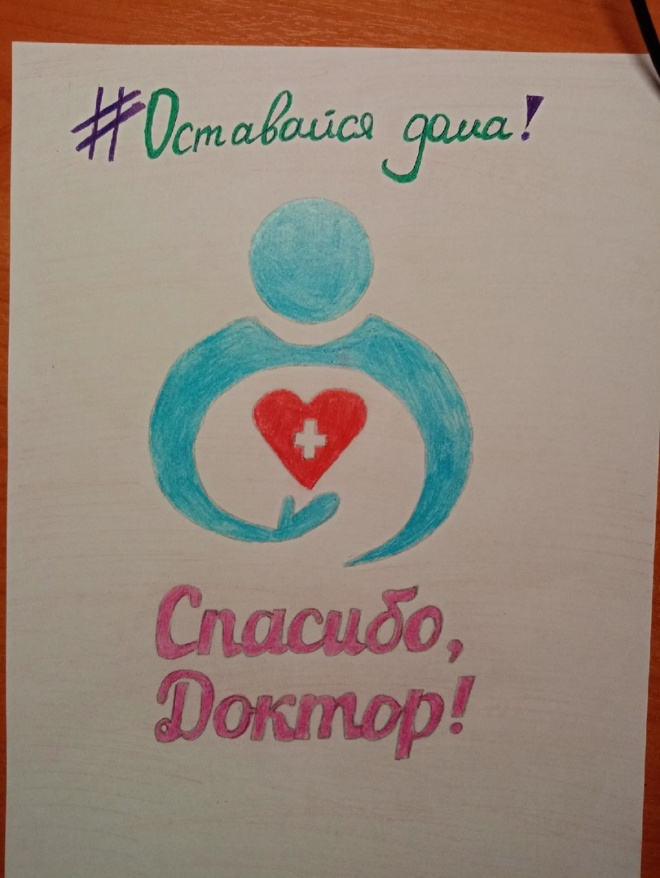 #Оставайся дома!
Спасибо,
Доктор!